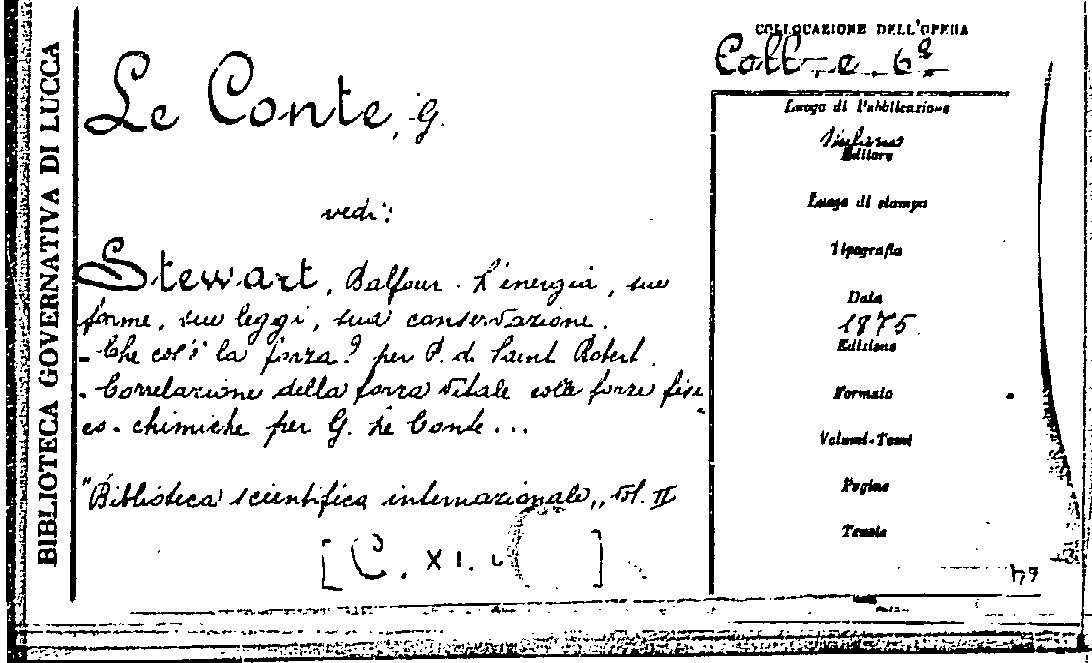 BIBLIOTECA GOVERNATIVA DI LUCCA
Le Conte, G.
vedi:
Stewart, Balfour. L'energia, sue
forme, sue leggi, sua conservazione.
- Che cos'è la forza? per P. di Saint Robert.
- Correlazione della forza vitale colle forze fisi
co-chimiche per G. Le Conte...
"Biblioteca scientifica internazionale,, Vol. II
[C. XI.
COLLOCAZIONE DELL'OPERA
Coll-e 6ª
Luogo di Pubblicazione
Editore
Luogo di stampa
Tipografia
Data
1875.
Edizione
Formato
Volumi-Tomi
Pagine
Tavole